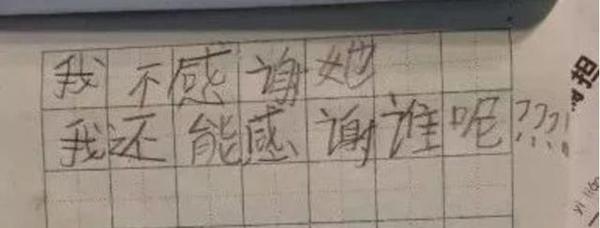 我不感谢她
我还能感谢谁呢????!
担
yi liáo